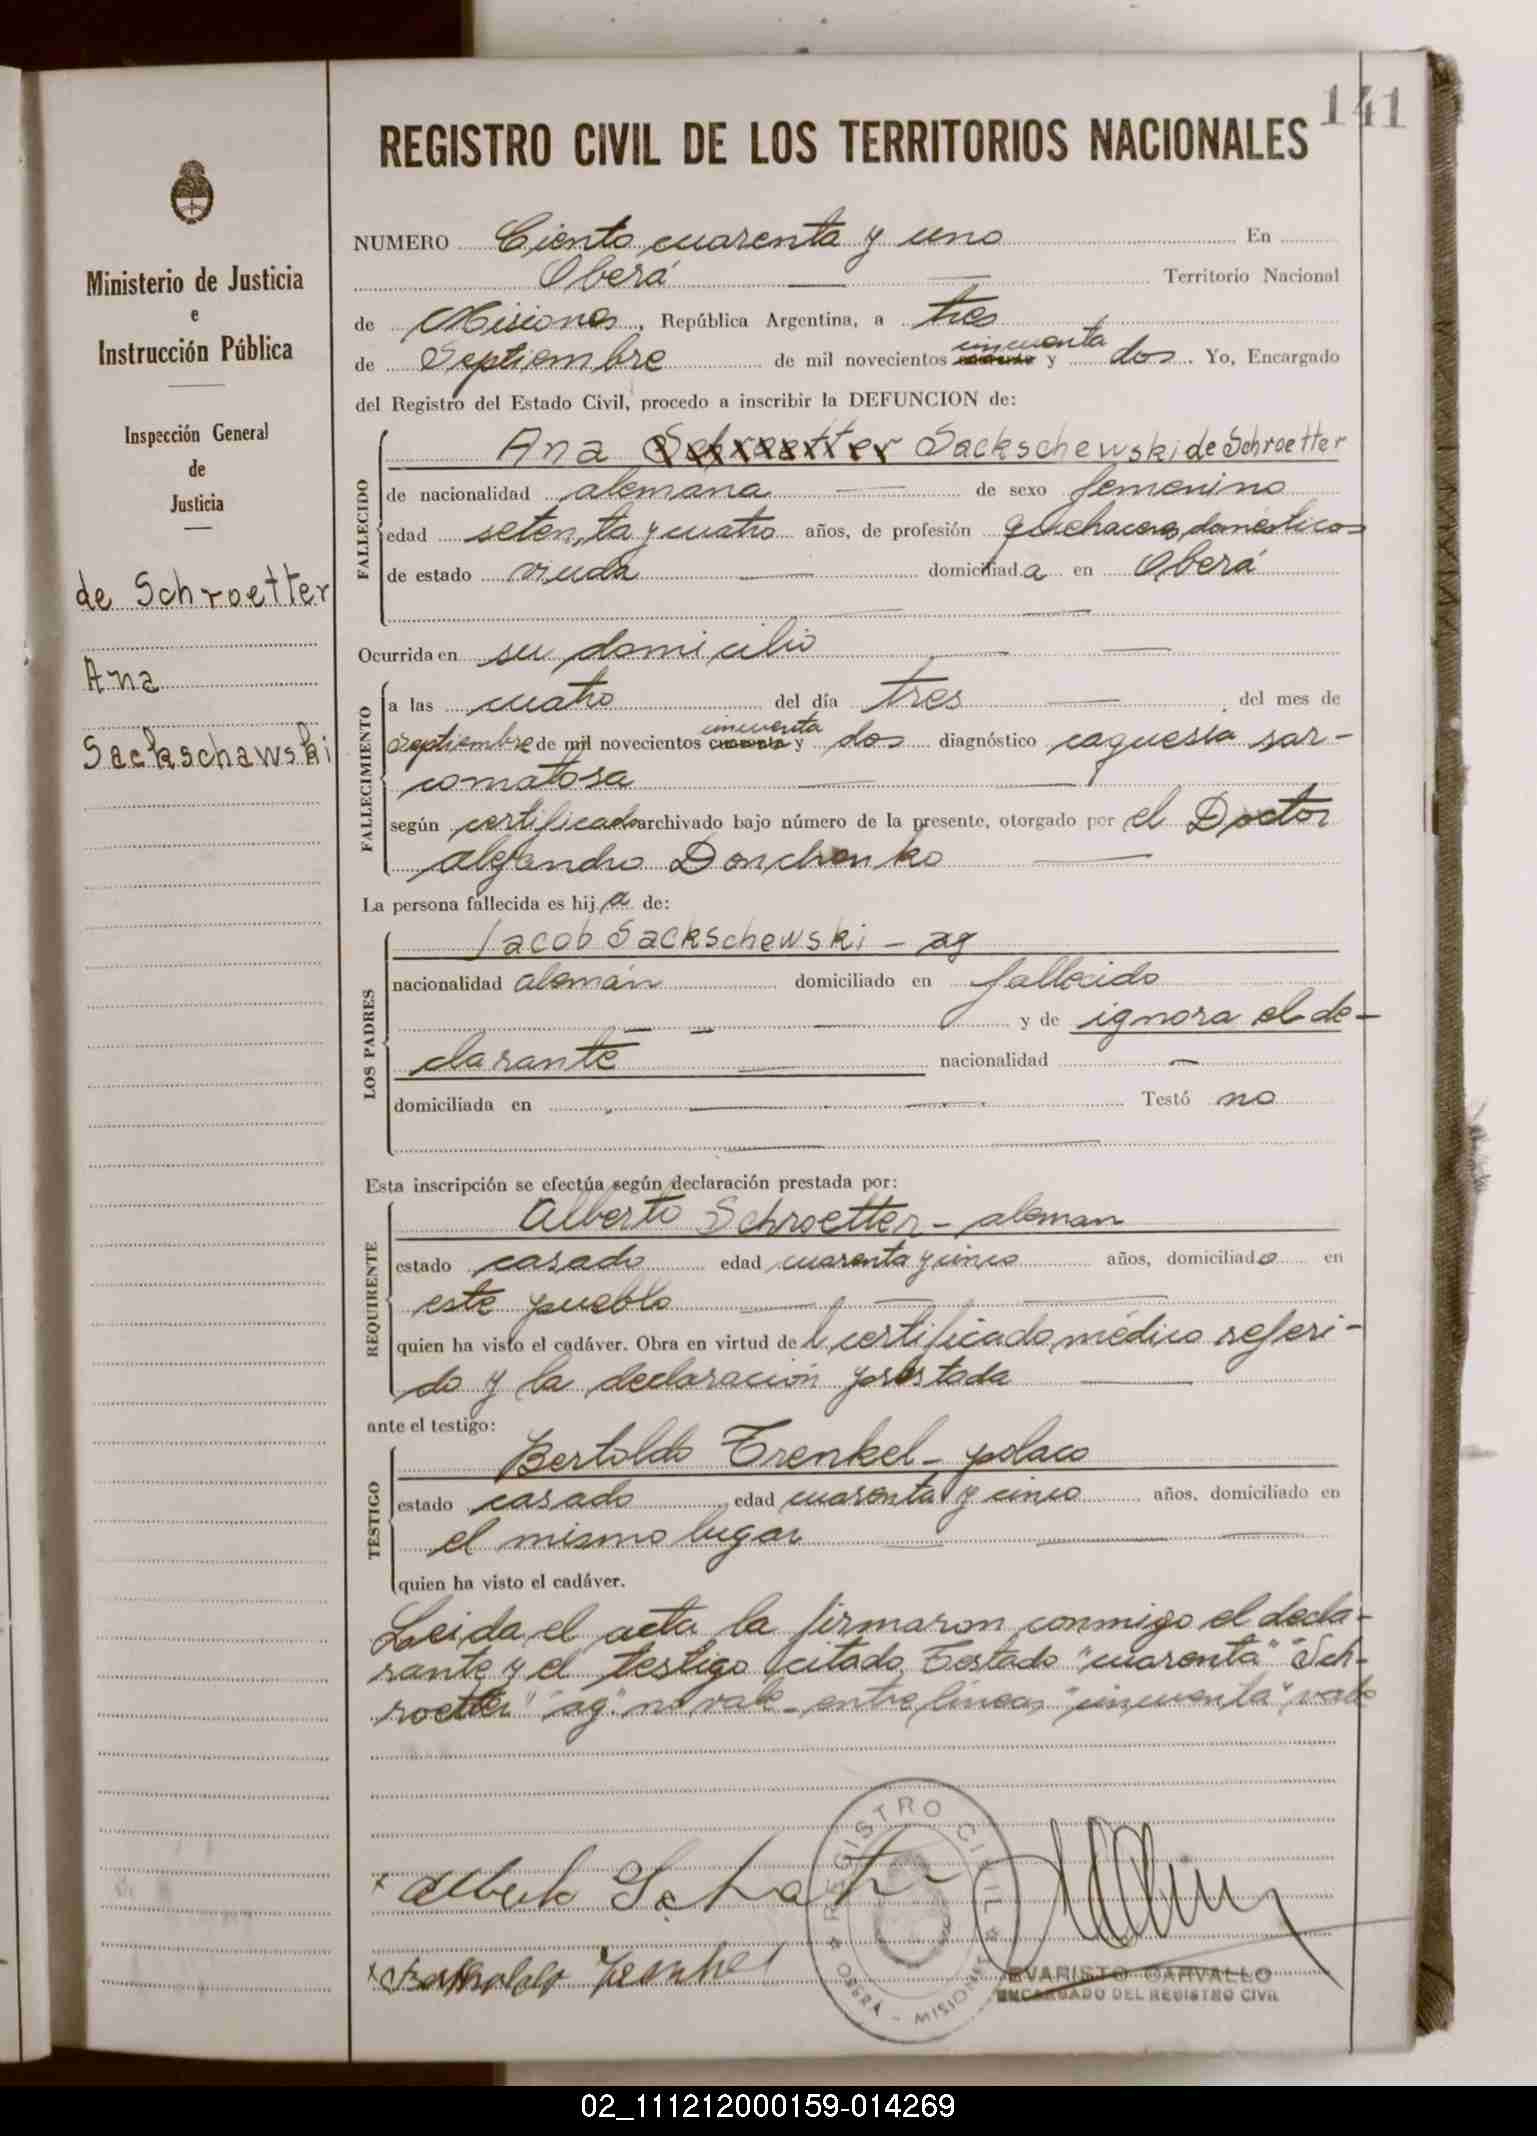 141
REGISTRO CIVIL DE LOS TERRITORIOS NACIONALES
Ministerio de Justicia
e
Instrucción Pública
Inspección General
de
Justicia
de Schroetter
Ana
Sackschawski
NUMERO Ciento cuarenta y uno En
Oberá Territorio Nacional
de Misiones, República Argentina, a tres
de Septiembre de mil novecientos cuarenta cincuenta y dos. Yo, Encargado
del Registro del Estado Civil, procedo a inscribir la DEFUNCION de:
FALLECIDO
Ana Schroetter Sackschewski de Schroetter
de nacionalidad alemana de sexo femenino
edad setenta y cuatro años, de profesión quehaceres domésticos
de estado viuda domiciliada en Oberá
Ocurrida en su domicilio
FALLECIMIENTO
a las cuatro del día tres del mes de
Septiembre de mil novecientos cuarenta cincuenta y dos diagnóstico caquesia sar-
comatosa
según certificado archivado bajo número de la presente, otorgado por el Doctor
Alejandro Donchenko
La persona fallecida es hija de:
LOS PADRES
Jacob Sackschewski - ag
nacionalidad alemán domiciliado en fallecido
y de ignora el de-
clarante nacionalidad -
domiciliada en Testó no
Esta inscripción se efectúa según declaración prestada por:
REQUIRENTE
Alberto Schroetter - aleman
estado casado edad cuarenta y cinco años, domiciliado en
este pueblo
quien ha visto el cadáver. Obra en virtud del certificado médico referi-
do y la declaración prestada
ante el testigo:
TESTIGO
Bertoldo Trenkel - polaco
estado casado edad cuarenta y cinco años, domiciliado en
el mismo lugar
quien ha visto el cadáver.
Leida el acta la firmaron conmigo el decla-
rante y el testigo citado. Testado "cuarenta" "Sch-
roetter" "ag" no vale - entre líneas "cincuenta" vale
REGISTRO CIVIL
OBERA - MISIONES
EVARISTO CARVALLO
ENCARGADO DEL REGISTRO CIVIL
02_111212000159-014269